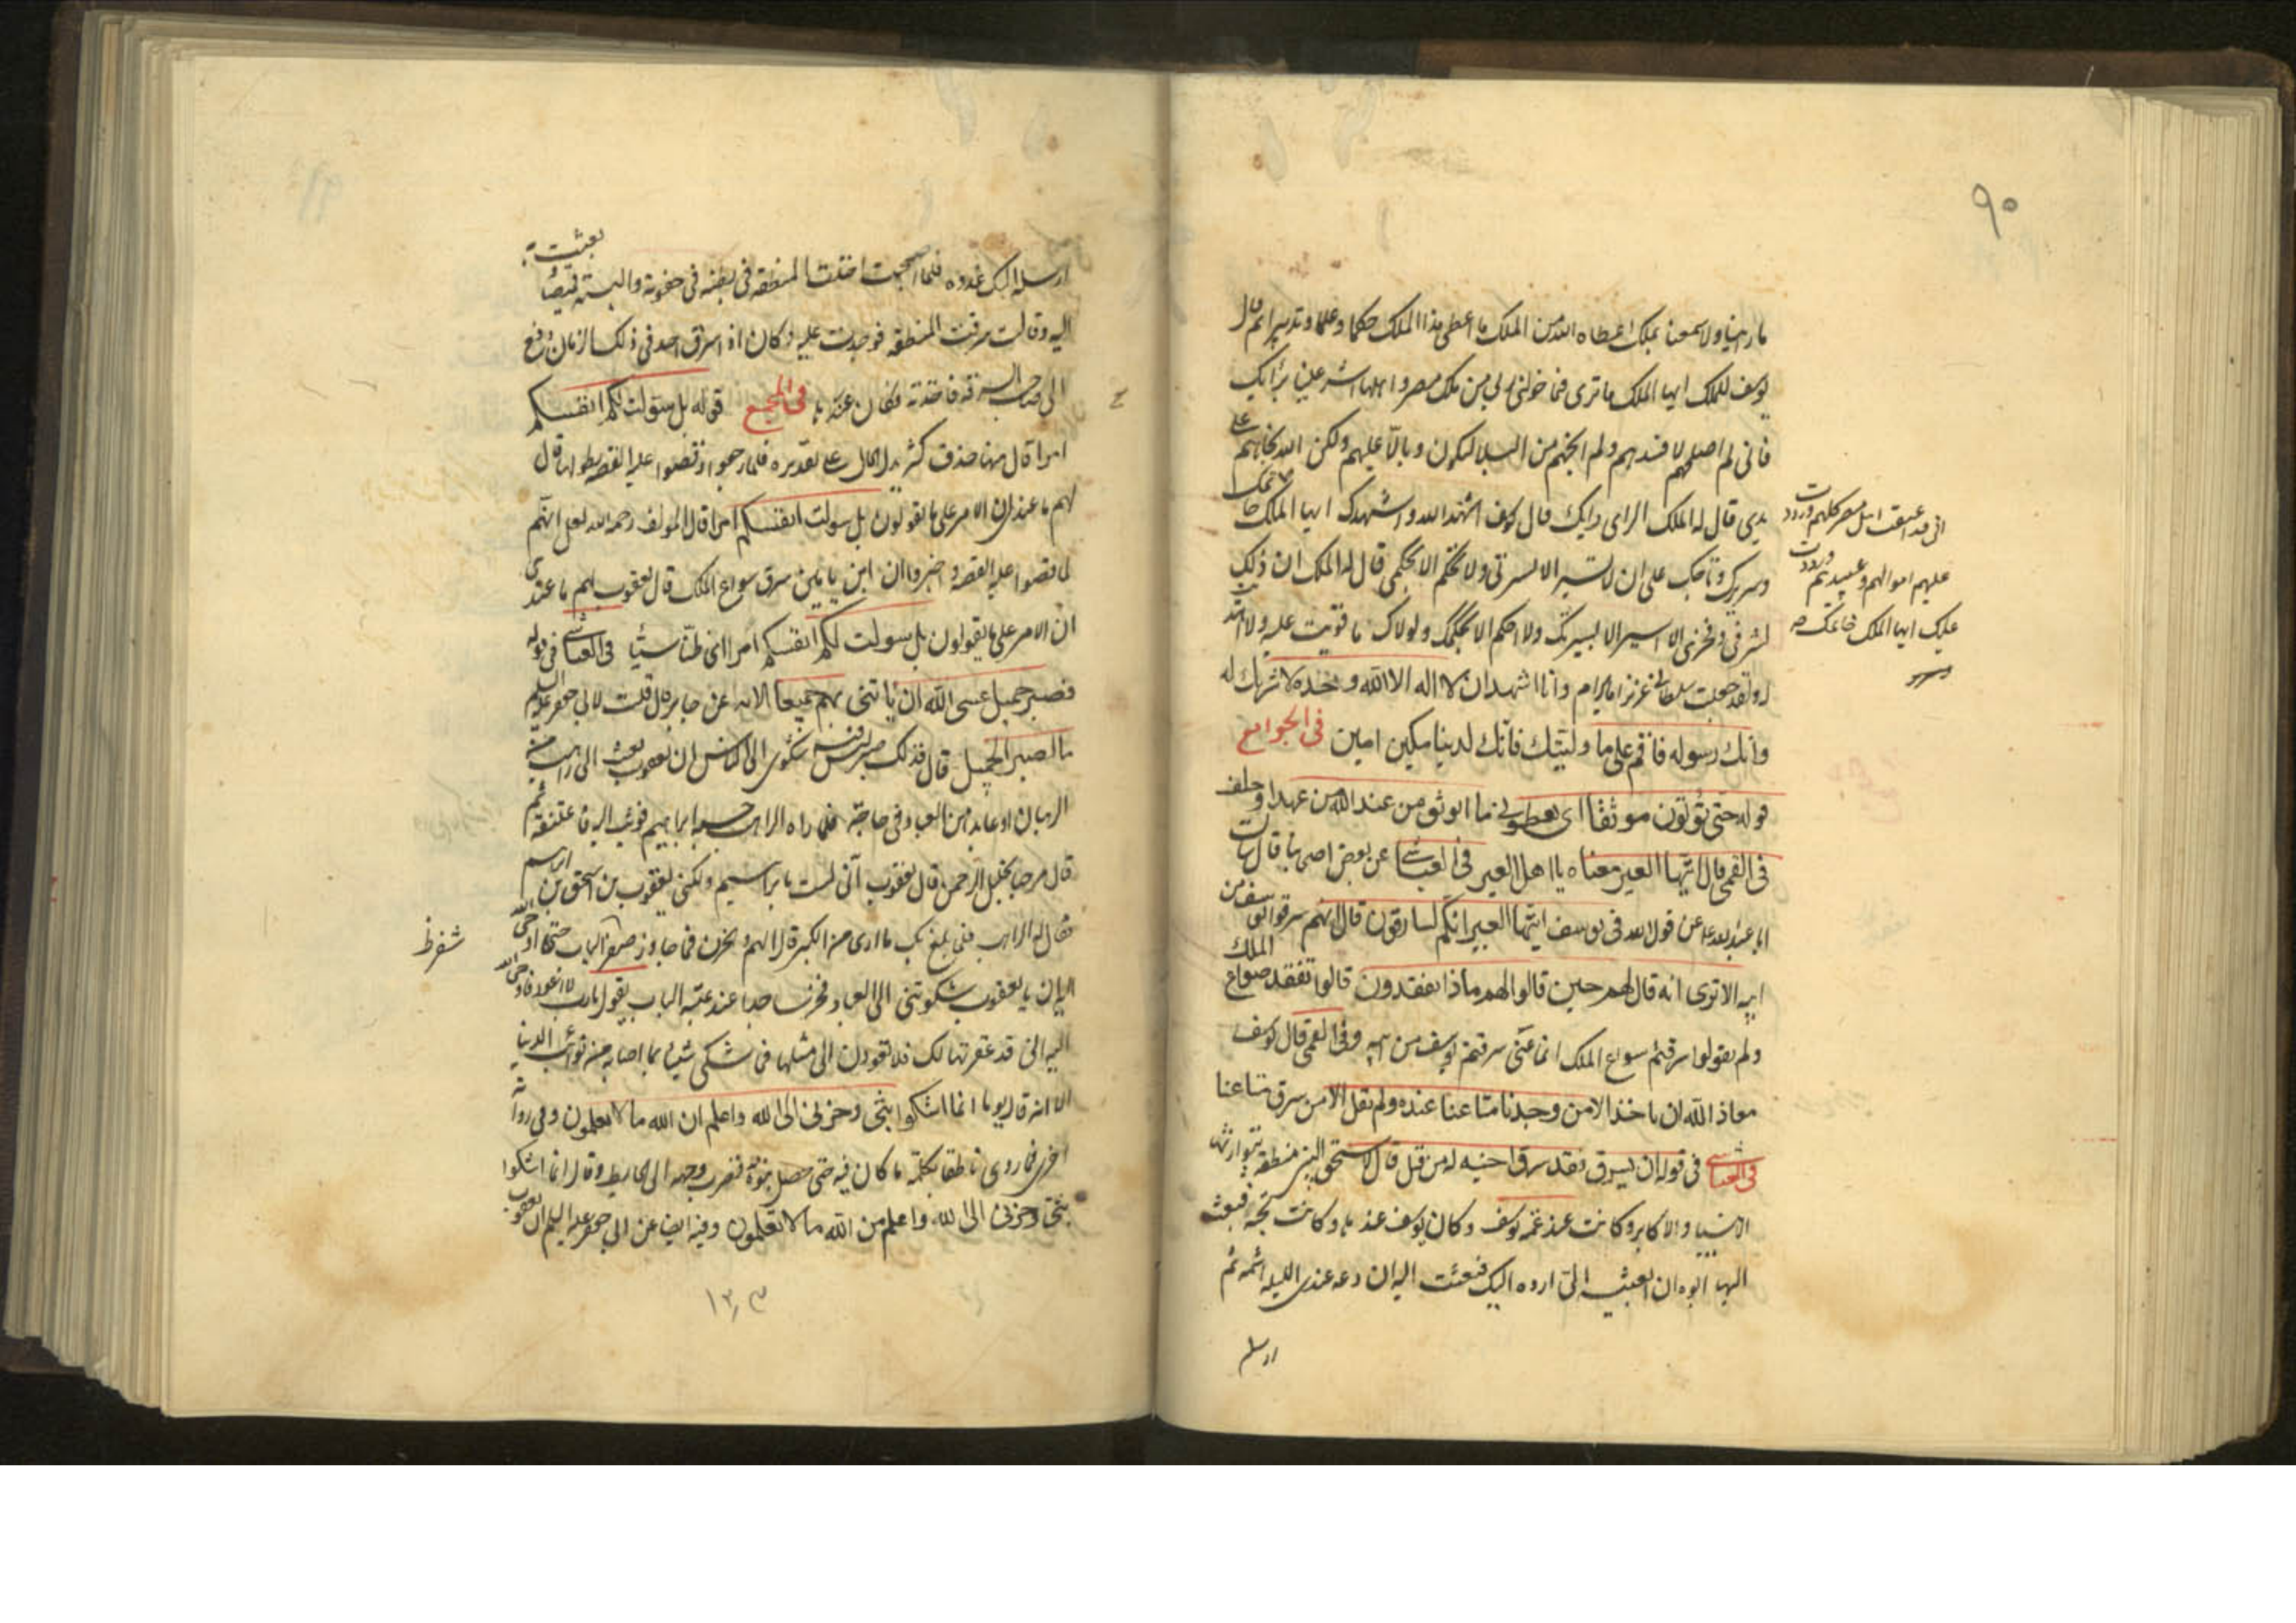 ٩٠
ما راينا ولا سمعنا بملك اعطاه الله من الملك ما اعطى هذا الملك حكما وعلما وتدبيرا ثم قال
يوسف للملك ايها الملك ما ترى فيما خولنى ربى من ملك مصر واهلها اشر علينا برأيك
فانى لم اصلحهم لافسدهم ولم انجهم من البلاء ليكون وبالا عليهم ولكن الله نجاهم
بيدى قال له الملك الراى رايك قال يوسف اشهد الله واشهدك ايها الملك
وسريرك وتاجك على ان لا تسير الا بسيرتى ولا تحكم الا بحكمى قال له الملك ان ذلك
لشرفى وفخرى الا اسير الا بسيرتك ولا احكم الا بحكمك ولولاك ما قويت عليه ولا اهتديت
له ولقد جعلت سلطانى عزيزا ما يرام وانا اشهد ان لا اله الا الله وحده لا شريك له
وانك رسوله فاقم على ما وليتك فانك لدينا مكين امين فى الجوامع
قوله حتى تؤتون موثقا اى يعطونى ما اتوثق من عند الله من عهد او حلف
فى القمى قال ايتها العير معناه يا اهل العير فى العياشى عن بعض اصحابنا قال سالت
ابا عبد الله ع عن قول الله فى يوسف ايتها العير انكم لسارقون قال انهم سرقوا يوسف من
ابيه الا ترى انه قال لهم حين قالوا لهم ماذا تفقدون قالوا نفقد صواع الملك
ولم يقولوا سرقتم سواع الملك انما عنى سرقتم يوسف من ابيه وفى القمى قال يوسف
معاذ الله ان ناخذ الا من وجدنا متاعنا عنده ولم يقل الا من سرق متاعنا
فى العياشى فى قوله ان يسرق فقد سرق اخ له من قبل قال كانت لاسحق النبى منطقة يتوارثها
الانبياء والاكابر وكانت عند عمة يوسف وكان يوسف عندها وكانت تحبه فبعث
اليها ابوه ان ابعثيه الى ارده اليك فبعثت اليه ان دعه عندى الليلة اشمه ثم
ارسله
انى قد اعتقت اهل مصر كلهم ورددت
عليهم اموالهم وعبيدهم ورددت
عليك ايها الملك خاتمك
ارسله اليك غدوه فلما اصبحت اخذت المنطقة فى بطنه فى حقوته والبسته قميصا بعثت به
اليه وقالت سرقت المنطقه فوجدت عليه وكان اذا سرق احد فى ذلك الزمان دفع
الى صاحب السرقة فاخذته فكان عندها فى المجمع قوله بل سولت لكم انفسكم
امرا قال ههنا حذف كثير يدل الحال على تقديره فلما رجعوا وقصوا عليه القصة بطولها قال
لهم ما عندى ان الامر على ما تقولون بل سولت انفسكم امرا قال المولف رحمه الله لعل انهم
لما قصوا عليه القصة واخبروا ان ابن يامين سرق سواع الملك قال يعقوب لهم ما عندى
ان الامر على ما يقولون بل سولت لكم انفسكم امرا اى ظنا سيئا فى العياشى فى قوله
فصبر جميل عسى الله ان ياتينى بهم جميعا الايه عن جابر قال قلت لابى جعفر عليه السلم
ما الصبر الجميل قال فذلك صبر ليس فيه شكوى الى الناس ان يعقوب بعثه الى راهب من
الرهبان او عابد من العباد فى حاجة فلما راه الراهب حسبه ابراهيم فوثب اليه فاعتنقه ثم
قال مرحبا بخليل الرحمن قال يعقوب انى لست بابراهيم ولكنى يعقوب بن اسحق بن ابراهيم
فقال له الراهب فمن بلغ بك ما ارى من الكبر قال الهم والحزن فما جاوز صغير الباب حتى اوحى الله
اليه ان يا يعقوب شكوتنى الى العباد فخر ساجدا عند عتبة الباب يقول يا رب لا اعود فاوحى الله
اليه انى قد غفرتها لك فلا تعودن الى مثلها فما شكى شيئا مما اصابه من نوائب الدنيا
الا انه قال يوما انما اشكوا بثى وحزنى الى الله واعلم ان الله ما لا تعلمون وفى رواية
اخرى فما روى ناطقا بكلمة ما كان فيه حتى حصل بنوه فضرب وجهه الى الحايط وقال انما اشكوا
بثى وحزنى الى الله واعلم من الله ما لا تعلمون وفيه ايضا عن ابى جعفر عليه السلم ان يعقوب